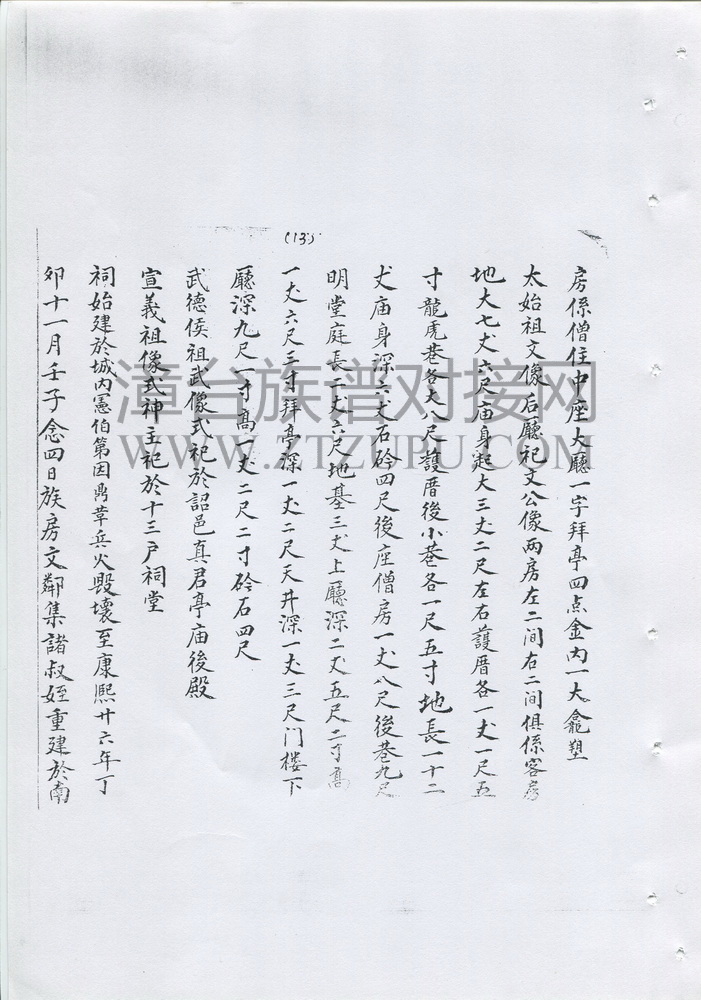 (13)
房係僧住中座大廳一字拜亭四点金內一大龕塑
太始祖文像后廳祀文公像兩房左二间右二间俱係客房
地大七丈六尺庙身起大三丈二尺左右護厝各一丈一尺五
寸龍虎巷各大八尺護厝後小巷各一尺五寸地長一十二
丈庙身深六丈石砛四尺後座僧房一丈八尺後巷九尺
明堂庭長二丈六尺地基三丈上廳深二丈五尺二寸高
一丈六尺三寸拜亭深一丈二尺天井深一丈三尺门楼下
廳深九尺一寸高一丈二尺二寸砛石四尺
武德侯祖武像式祀於詔邑真君亭庙後殿
宣義祖像式神主祀於十三户祠堂
祠始建於城內憲伯第因鼎革兵火毀壞至康熙廿六年丁
卯十一月壬子念四日族房文鄰集諸叔姪重建於南
漳台族谱对接网
WWW.ZTZUPU.COM